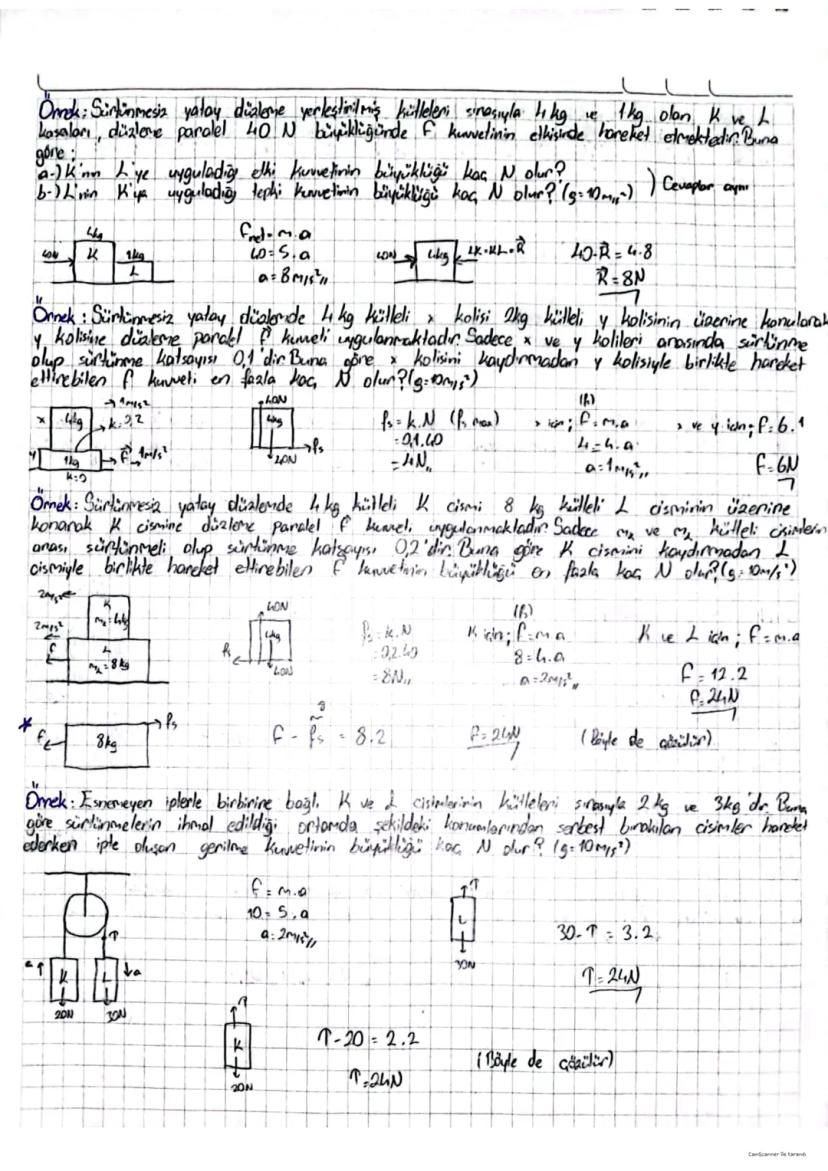 Örnek: Sürtünmesiz yatay düzleme yerleştirilmiş kütleleri sırasıyla 4 kg ve 1 kg olan K ve L
kasaları, düzleme paralel 40 N büyüklüğünde F kuvvetinin etkisinde hareket etmektedir. Buna
göre;
a-) K'nın L'ye uyguladığı etki kuvvetinin büyüklüğü kaç N olur?
b-) L'nin K'ya uyguladığı tepki kuvvetinin büyüklüğü kaç N olur? (g=10m/s²) ) Cevaplar aynı
4kg
40N K 1kg L
Fnet = m.a
40 = 5.a
a = 8m/s²
40N 4kg
40-R = 4.8
R = 8N
Örnek: Sürtünmesiz yatay düzlemde 4 kg kütleli x kolisi 2kg kütleli y kolisinin üzerine konularak
y kolisine düzleme paralel F kuvveti uygulanmaktadır. Sadece x ve y kolileri arasında sürtünme
olup sürtünme katsayısı 0,1'dir. Buna göre x kolisini kaydırmadan y kolisiyle birlikte hareket
ettirebilen F kuvveti en fazla kaç N olur? (g=10m/s²)
x 4kg 1m/s²
y 1kg F 1m/s²
k=0
40N
4kg fs
40N
fs = k.N (fs max)
= 0,1.40
= 4N
(fs)
x için; F = m.a
4 = 4.a
a = 1m/s²
x ve y için; F = 6.1
F = 6N
Örnek: Sürtünmesiz yatay düzlemde 4 kg kütleli K cismi 8 kg kütleli L cisminin üzerine
konarak K cismine düzleme paralel F kuvveti uygulanmaktadır. Sadece ve kütleli cisimlerin
arası sürtünmeli olup sürtünme katsayısı 0,2'dir. Buna göre K cismini kaydırmadan L
cismiyle birlikte hareket ettirebilen F kuvvetinin büyüklüğü en fazla kaç N olur? (g=10m/s²)
2m/s² K
2m/s² L
F 8kg
40N
fs 4kg
40N
fs = k.N
= 0,2.40
= 8N
(fs)
K için; F = m.a
8 = 4.a
a = 2m/s²
K ve L için; F = m.a
F = 12.2
F = 24N
* F 8kg fs
8
F - fs = 8.2
F = 24N
(Böyle de çözülür)
Örnek: Esnemeyen iplerle birbirine bağlı K ve L cisimlerinin kütleleri sırasıyla 2 kg ve 3kg'dır. Buna
göre sürtünmelerin ihmal edildiği ortamda şekildeki konumlarından serbest bırakılan cisimler hareket
ederken ipte oluşan gerilme kuvvetinin büyüklüğü kaç N olur? (g=10m/s²)
T
a K L a
20N 30N
F = m.a
10 = 5.a
a = 2m/s²
T
L
30N
30-T = 3.2
T = 24N
T
K
20N
T-20 = 2.2
T = 24N
(Böyle de çözülür)
CamScanner ile tarandı